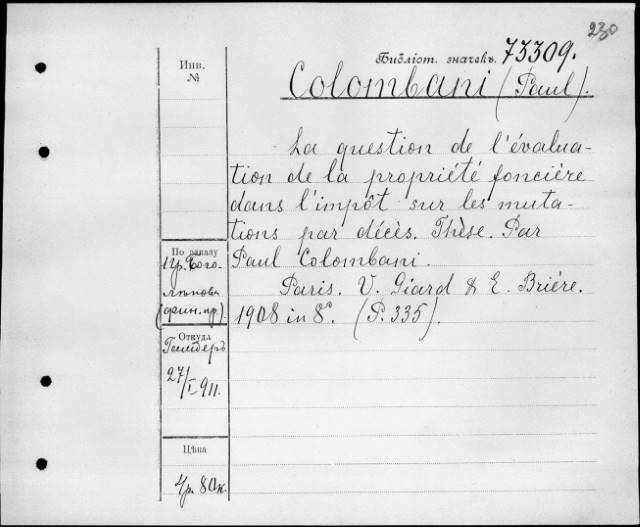 230
Библіот. значекъ. 73309.
Инв.
№
Colombani (Paul).
La question de l'évalua-
tion de la propriété foncière
dans l'impôt sur les muta-
tions par décès. Thèse. Par
Paul Colombani.
Paris. V. Giard & E. Brière.
1908 in 8°. (P. 335).
По заказу
(фин. пр.).
Откуда
27/I 911.
Цѣна
4р. 80к.